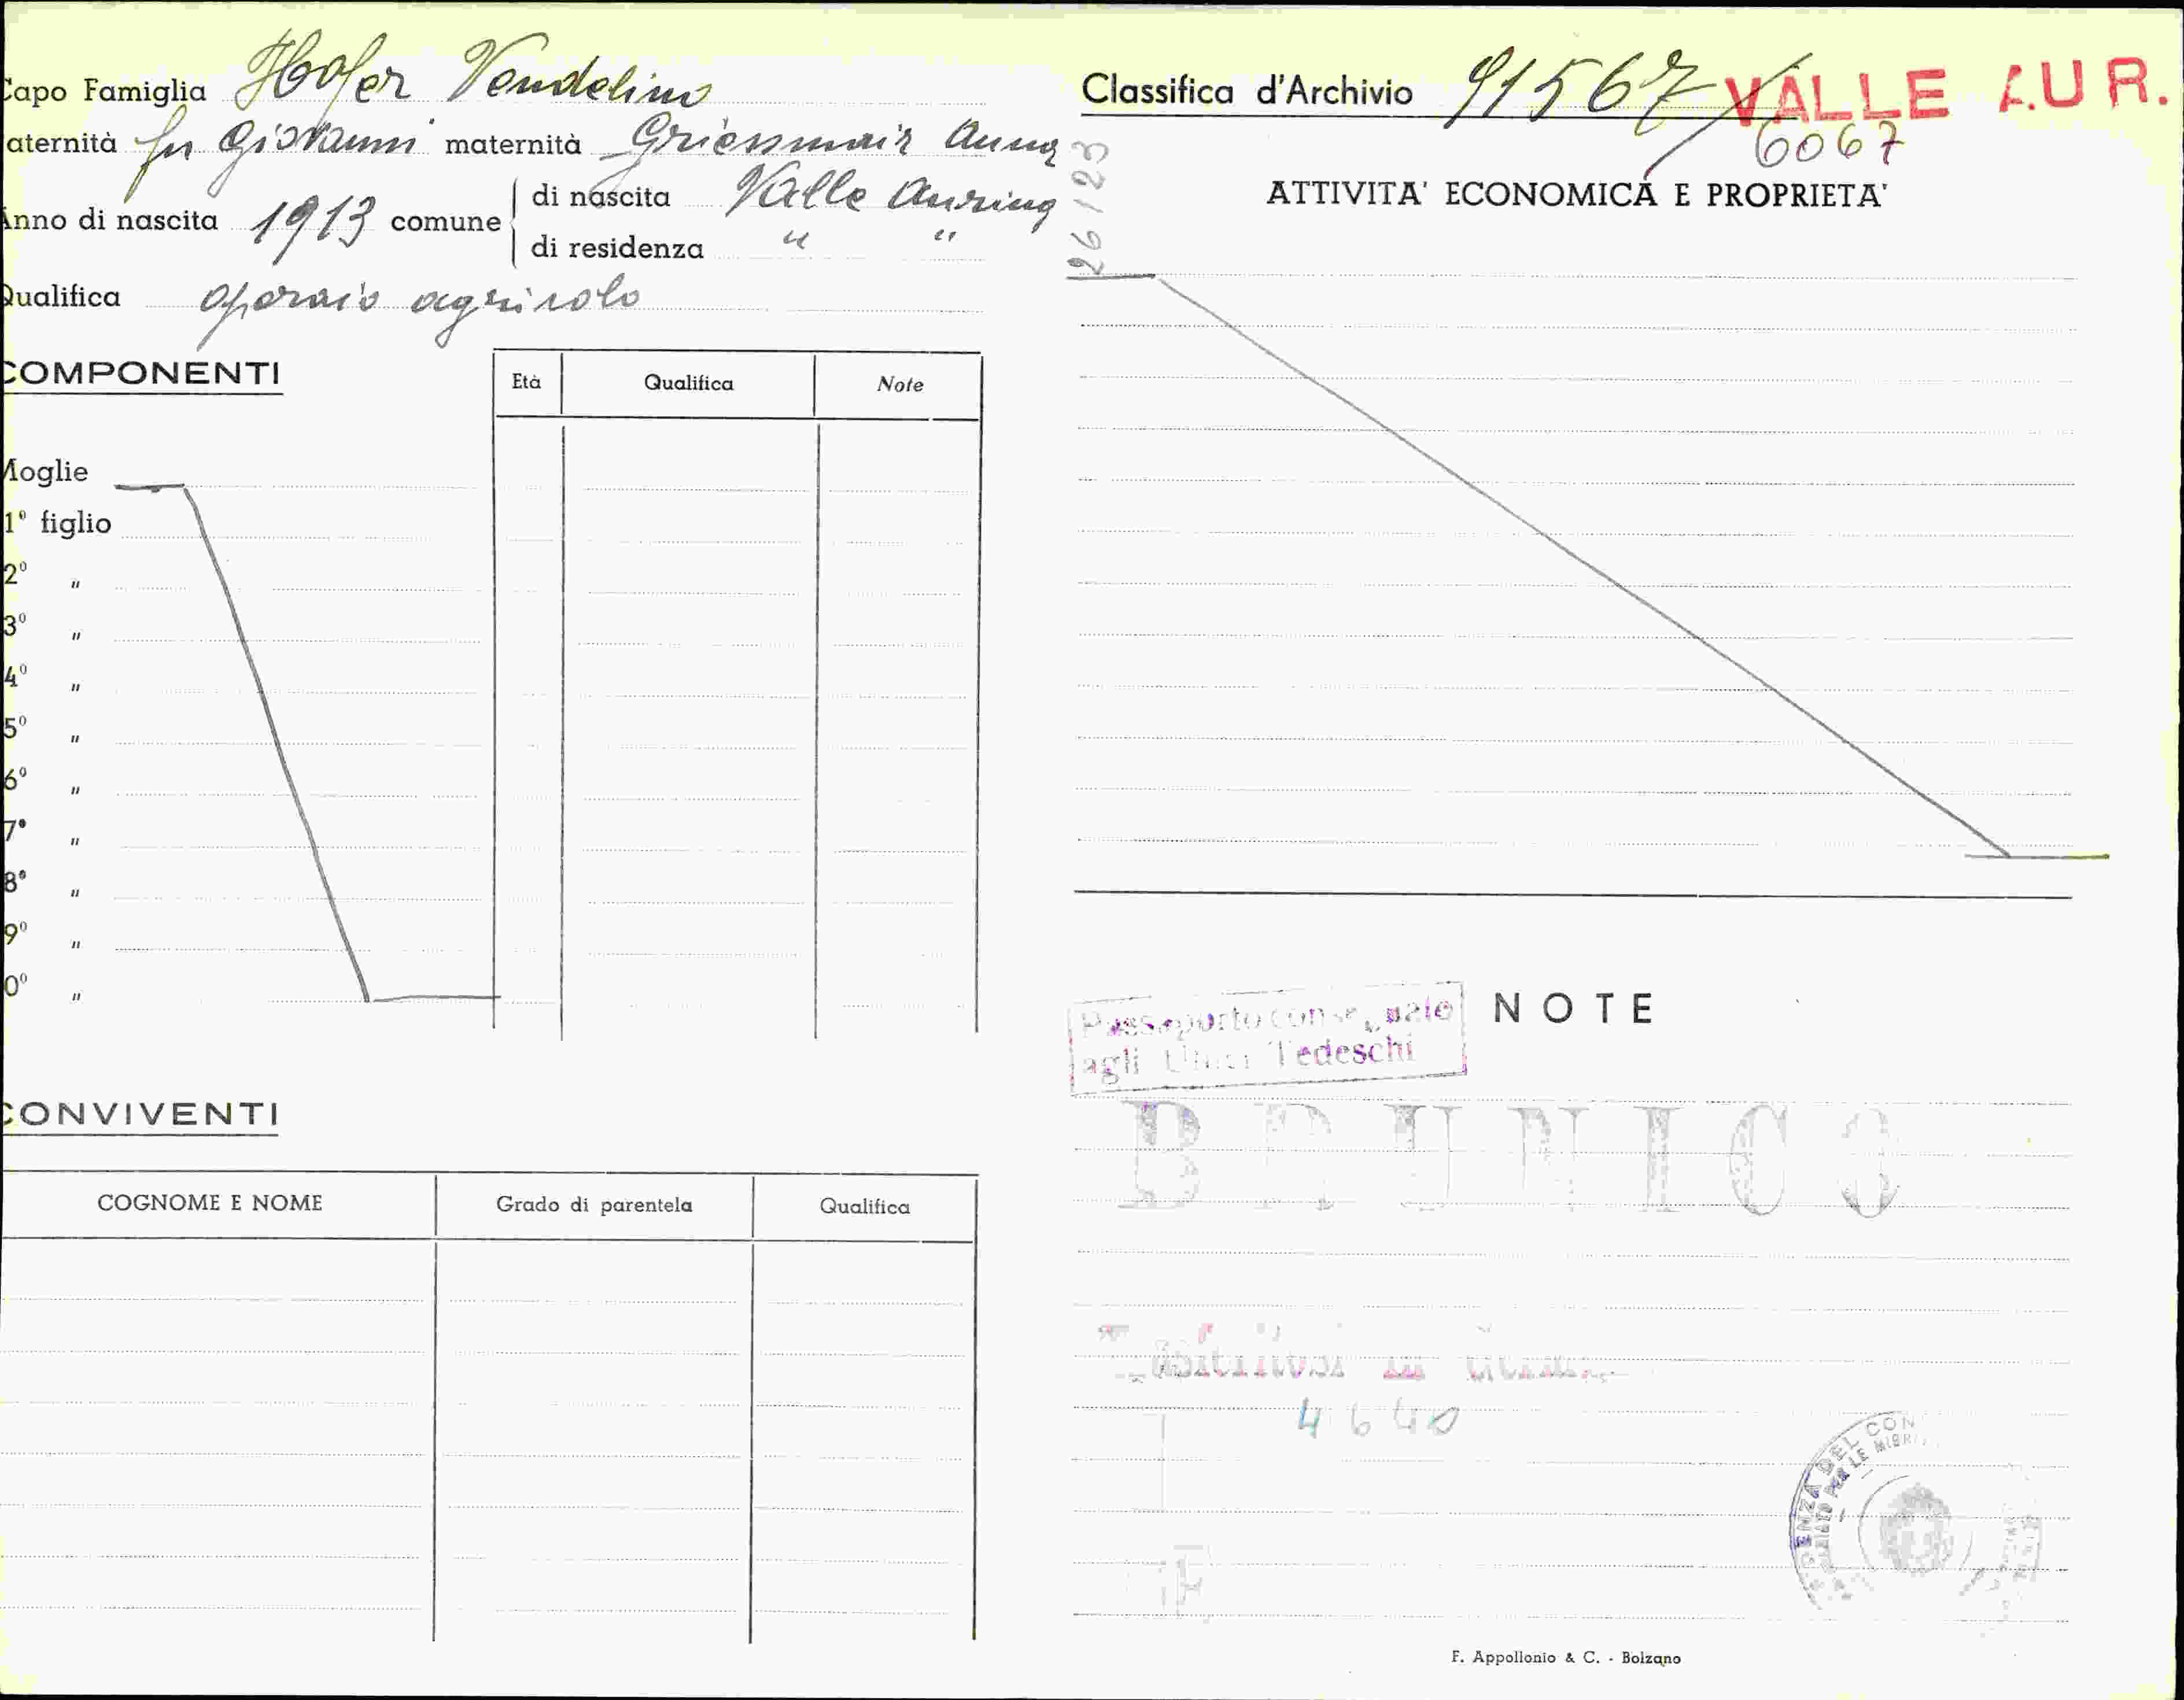 Capo Famiglia Hofer Vendelino
aternità fu Giovanni maternità Griessmair Anna
Anno di nascita 1913 comune di nascita Valle Aurina
di residenza " "
Qualifica operaio agricolo
COMPONENTI
Età Qualifica Note
Moglie
1° figlio
2° "
3° "
4° "
5° "
6° "
7° "
8° "
9° "
0° "
CONVIVENTI
COGNOME E NOME Grado di parentela Qualifica
Classifica d'Archivio 91567/ VALLE AUR.
6067
26/23
ATTIVITA' ECONOMICA E PROPRIETA'
NOTE
Passaporto consegnato
agli Uffici Tedeschi
BRUNICO
in
4640
ENZA DEL CON
PER LE MIGR
F. Appollonio & C. - Bolzano